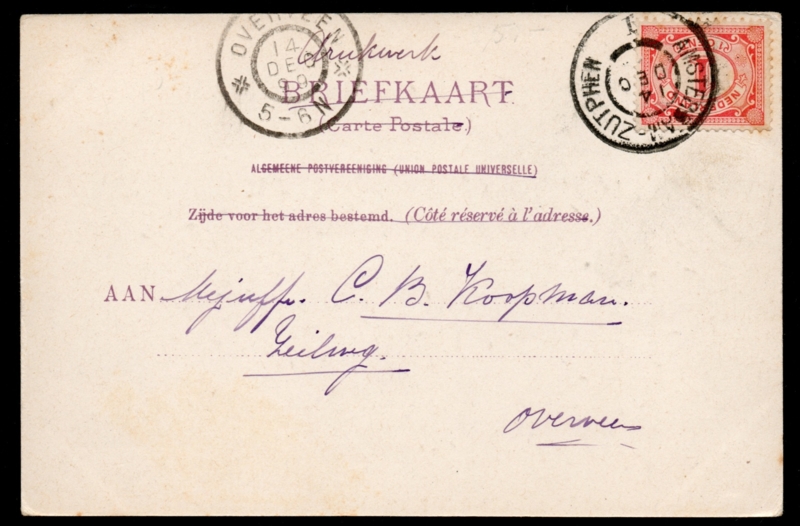 OVERVEEN
14
DEC
5-6N
drukwerk
AMSTERDAM-ZUTPHEN
BRIEFKAART
(Carte Postale.)
ALGEMEENE POSTVEREENIGING (UNION POSTALE UNIVERSELLE)
Zijde voor het adres bestemd. (Côté réservé à l'adresse.)
AAN Mejuffr. C. B. Koopman.
Overveen